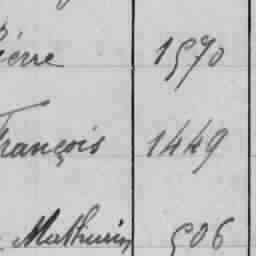 Pierre 1570
François 1449
Mathurin 506